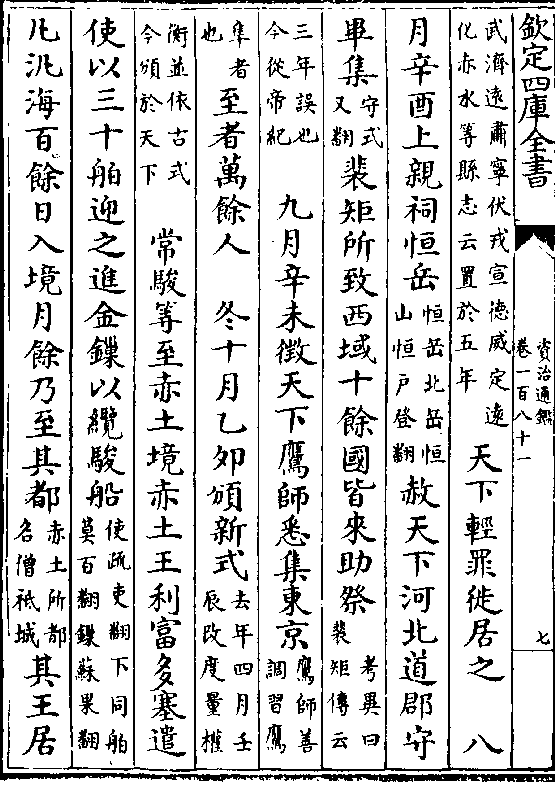 欽定四庫全書
資治通鑑
卷一百八十一
七
武濟遠肅寧伏戎宣德威定遠
化赤水等縣志云置於五年
天下輕罪徙居之　八
月辛酉上親祠恒岳
恒岳北岳恒
山恒戶登翻
赦天下河北道郡守
畢集
守式
又翻
裴矩所致西域十餘國皆來助祭
考異曰
裴矩傳云
三年誤也
今從帝紀
九月辛未徵天下鷹師悉集東京
鷹師善
調習鷹
隼者
也
至者萬餘人　冬十月乙卯頒新式
去年四月壬
辰改度量權
衡並依古式
今頒於天下
常駿等至赤土境赤土王利富多塞遣
使以三十舶迎之進金鏁以纜駿船
使疏吏翻下同舶
莫百翻鏁蘇果翻
凡汎海百餘日入境月餘乃至其都
赤土所都
名僧祇城
其王居